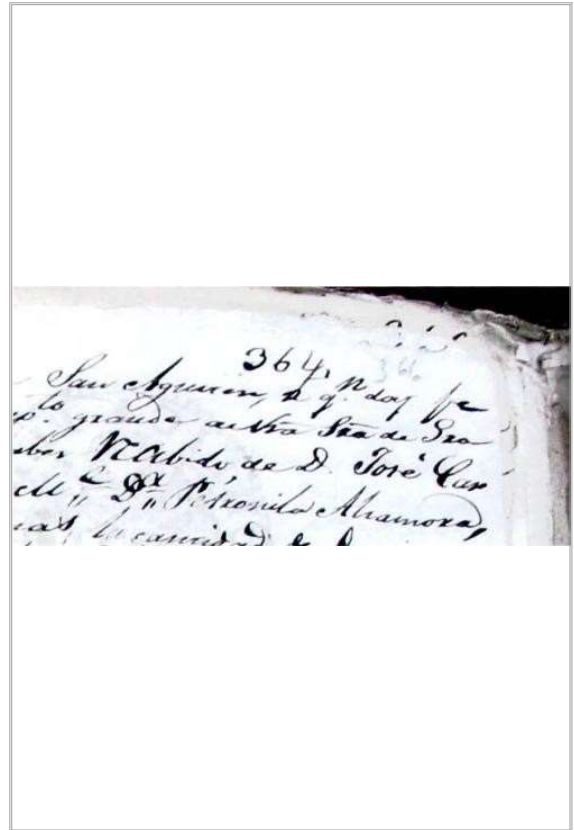 364,
San Agustin, a qn. doy fe
to. grande de Ntra Sra de Gra
aber Recibido de D. José Car
M,, Da,, Petronila Ahamora,
la cantidad de